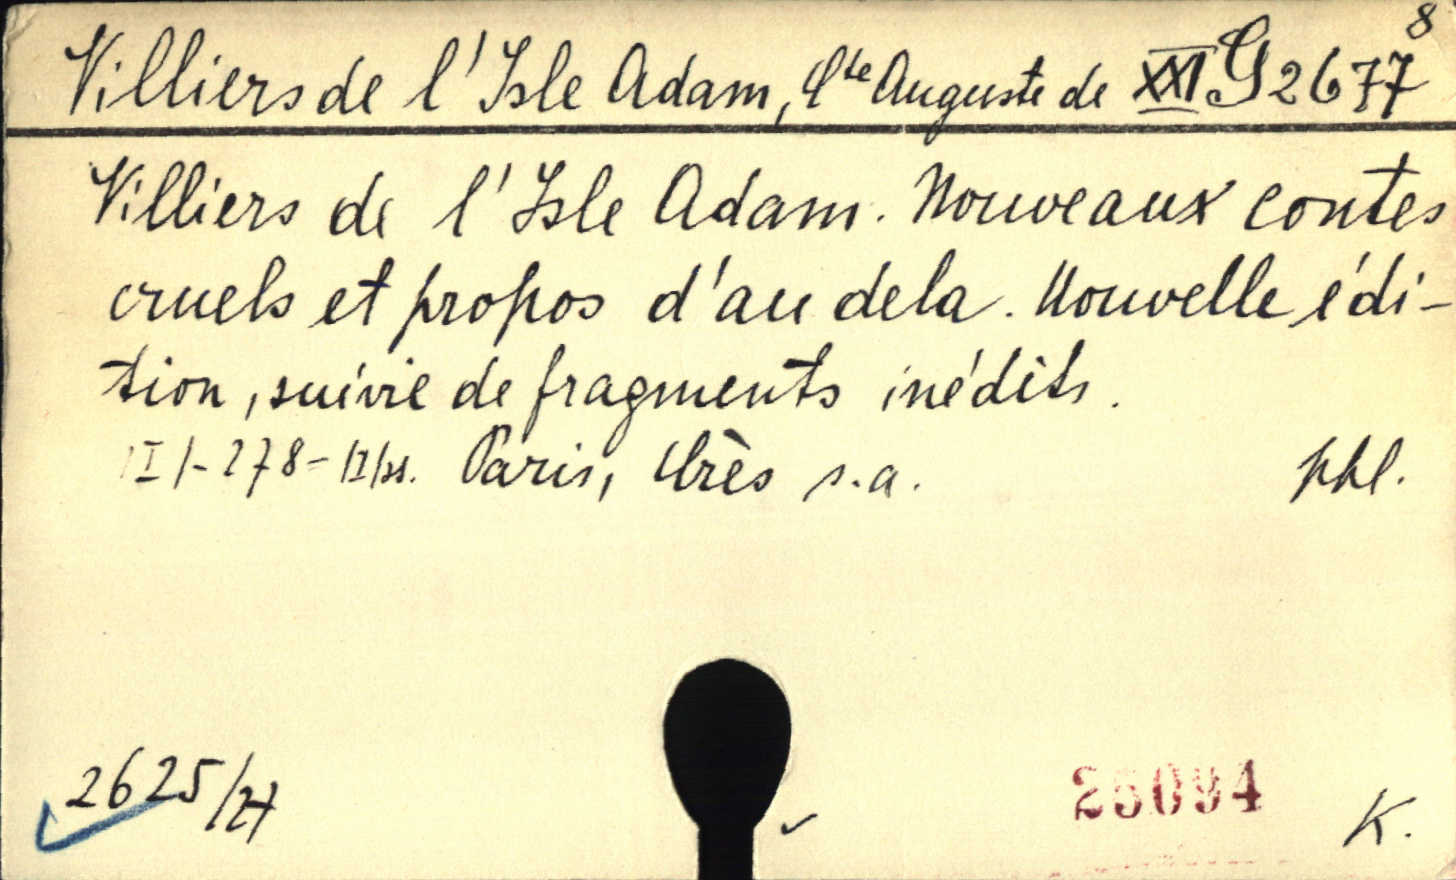 Villiers de l'Isle Adam, Cte Auguste de XXI G 2677 8
Villiers de l'Isle Adam. Nouveaux contes
cruels et propos d'au dela. Nouvelle édi-
tion, suivie de fragments inédits.
278 Paris, Crès s.a. phl.
2625/27
25094
K.